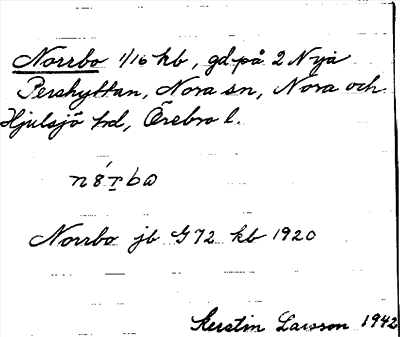 Norrbo 1/16 hb, gd på 2 Nya
Pershyttan, Nora sn, Nora och
Hjulsjö hd, Örebro l.
Norrbo jb G72 kb 1920
Kerstin Larsson 1942